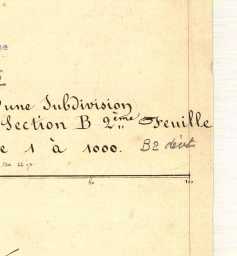 'une Subdivision
Section B 2ème Feuille
e 1 à 1000. B2 dévt